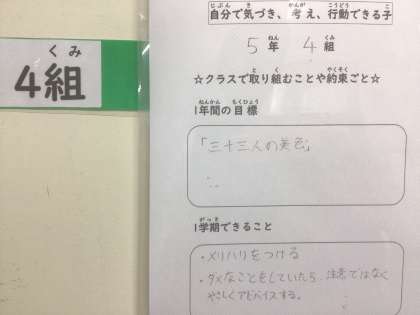 くみ
4組
じぶん き かんが こうどう こ
自分で気づき、考え、行動できる子
ねん くみ
5年 4組
と く やくそく
☆クラスで取り組むことや約束ごと☆
ねんかん もくひょう
1年間の目標
「三十三人の美色」
がっき
1学期できること
・メリハリをつける
・ダメなことをしていたら、注意ではなく
やさしくアドバイスする。